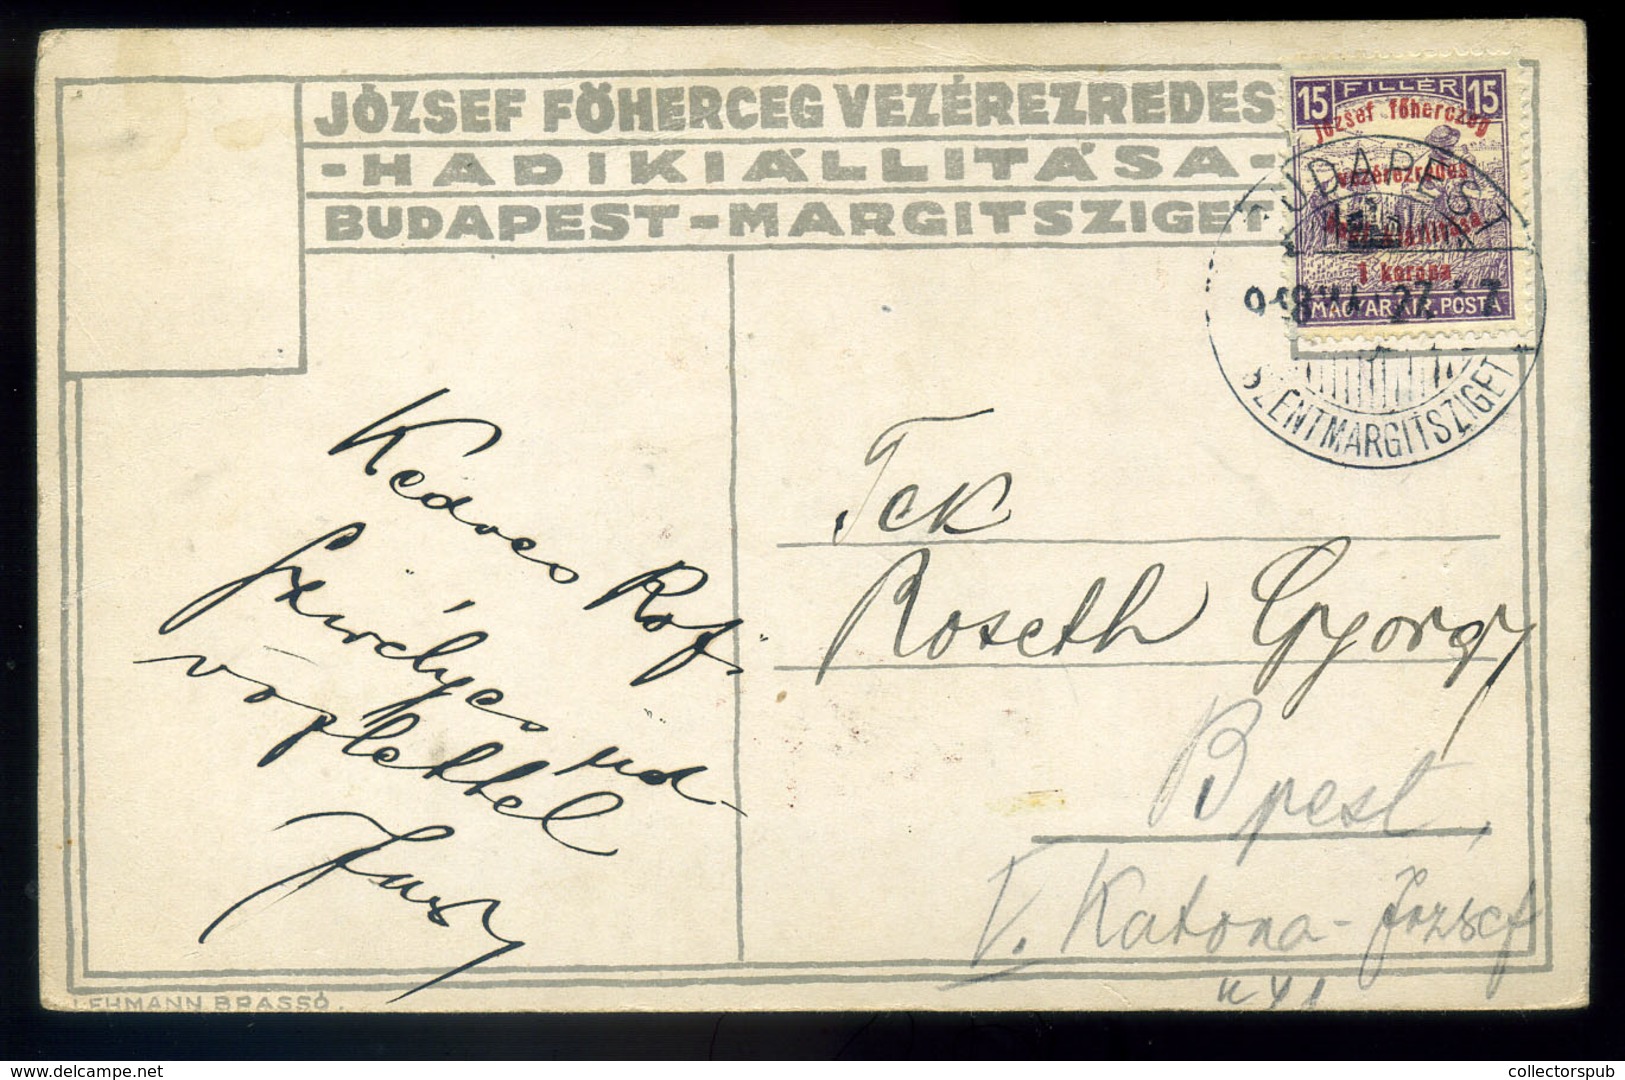 JÓZSEF FŐHERCEG VEZÉREZREDES
-HADIKIÁLLITÁSA-
BUDAPEST-MARGITSZIGET
15 FILLÉR 15
József főherczeg
vezérezredes
1 korona
MAGYAR KIR. POSTA
BUDAPEST
SZENTMARGITSZIGET
Kedves
Szivélyes üd-
vözlettel
Tek
Roseth György
Bpest,
V. Katona-József
u 41
LEHMANN BRASSÓ.
delcampe.net
collectorspub